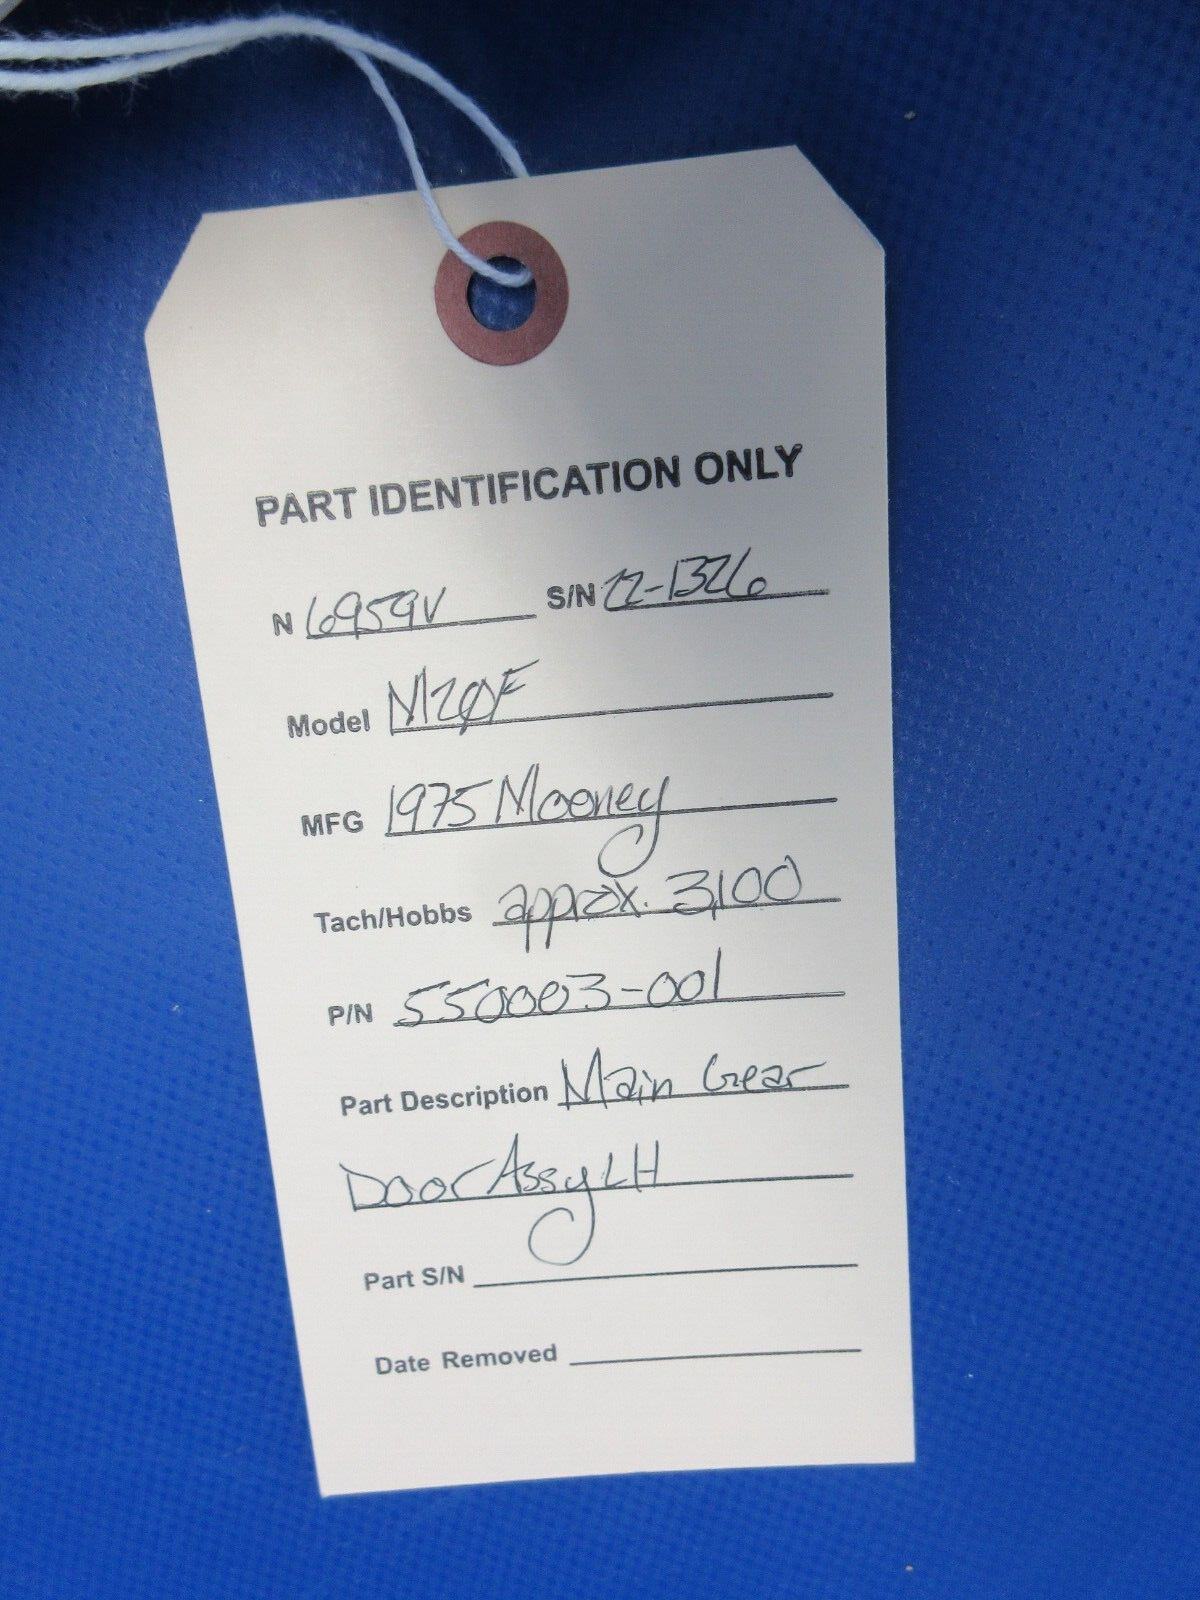 PART IDENTIFICATION ONLY
N 6959V S/N 22-1326
Model M20F
MFG 1975 Mooney
Tach/Hobbs approx. 3,100
P/N 550003-001
Part Description Main Gear
Door Assy LH
Part S/N
Date Removed